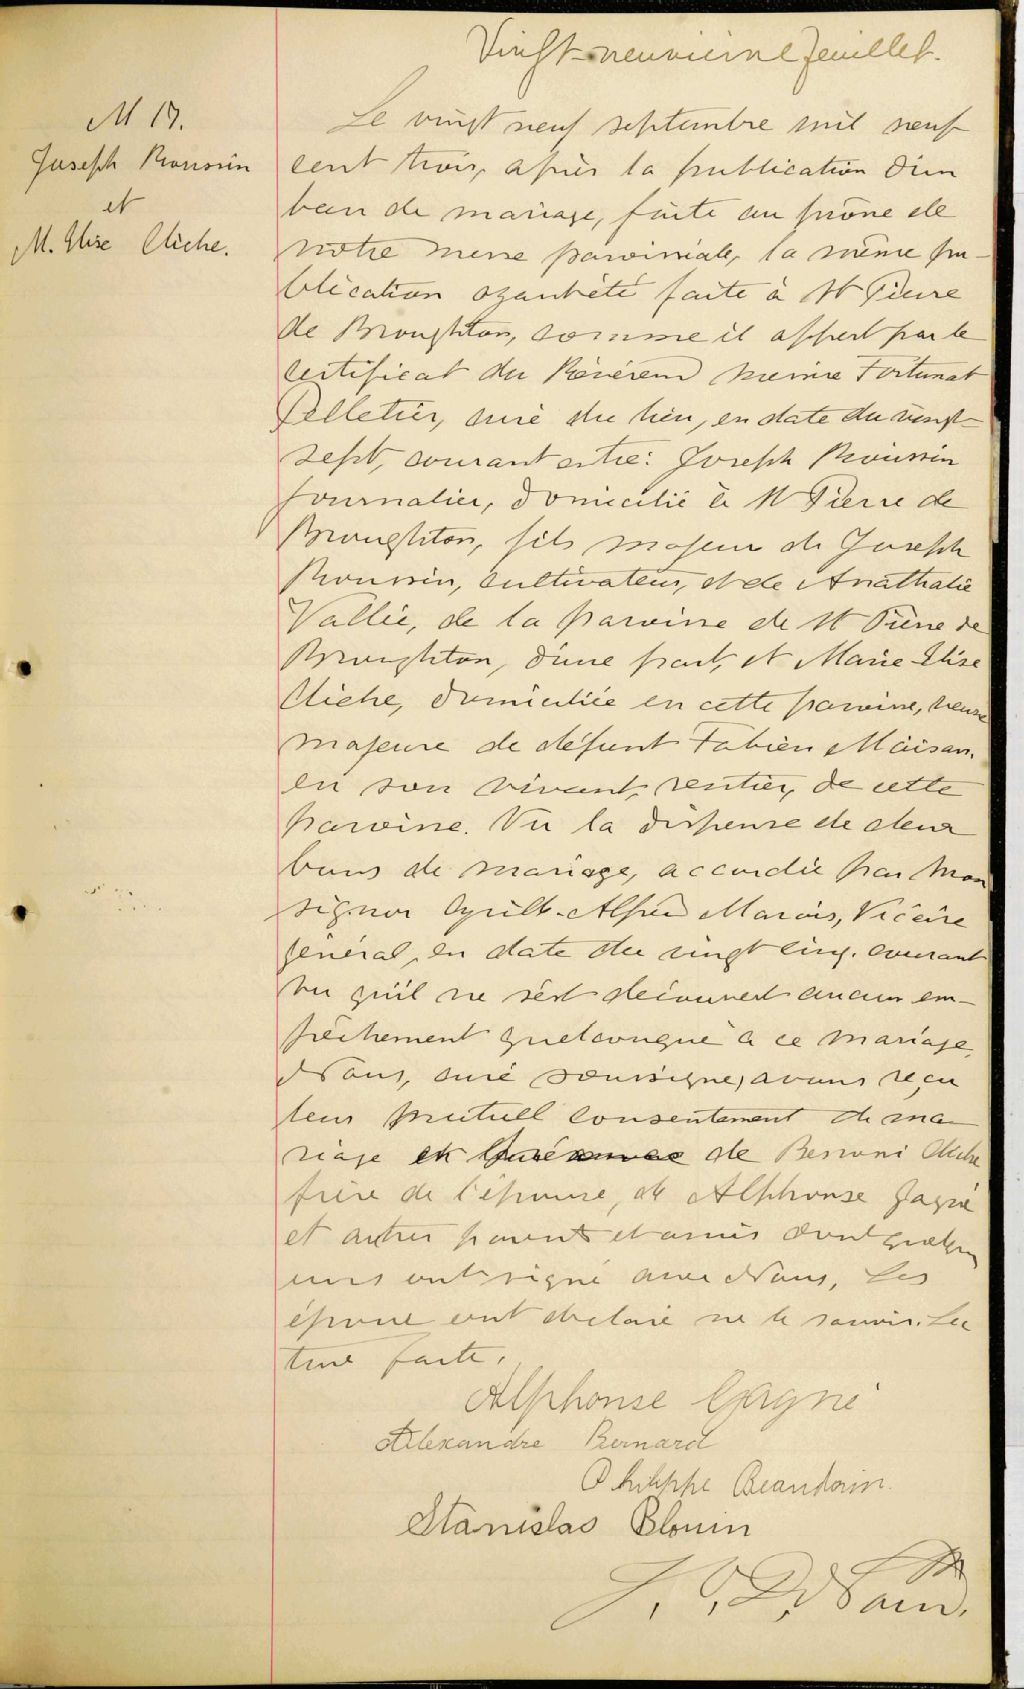 Vingt-neuvième feuillet.
M 17.
Joseph Roussin
et
M. Elise Cliche.
Le vingt neuf septembre mil neuf
cent trois, après la publication d'un
ban de mariage, faite au prône de
notre messe paroissiale, la même pu-
blication ayant été faite à St Pierre
de Broughton, comme il appert par le
certificat du Révérend messire Fortunat
Pelletier, curé du lieu, en date du vingt-
sept, courant entre: Joseph Roussin
journalier, domicilié à St Pierre de
Broughton, fils majeur de Joseph
Roussin, cultivateur, et de Anathalie
Vallée, de la paroisse de St Pierre de
Broughton, d'une part, et Marie-Elise
Cliche, domiciliée en cette paroisse, veuve
majeure de défunt Fabien
en son vivant, rentier, de cette
paroisse. Vu la dispense de deux
bans de mariage, accordée par Mon
signor Cyrille-Alfred Marois, Vicaire
général, en date du vingt cinq. courant
vu qu'il ne s'est découvert aucun em-
pêchement quelconque à ce mariage,
Nous, curé soussigné, avons reçu
leur mutuel consentement de ma-
riage en présence de Bessoni Cliche
frère de l'épouse, de Alphonse Gagné
et autres parents et amis dont quelques
uns ont signé avec Nous, Les
époux ont déclaré ne le savoir. Lec
ture faite.
Alphonse Gagné
Alexandre Bernard
Philippe Beaudoin.
Stanislas Blouin